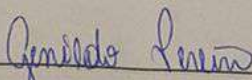 Genildo Pereira